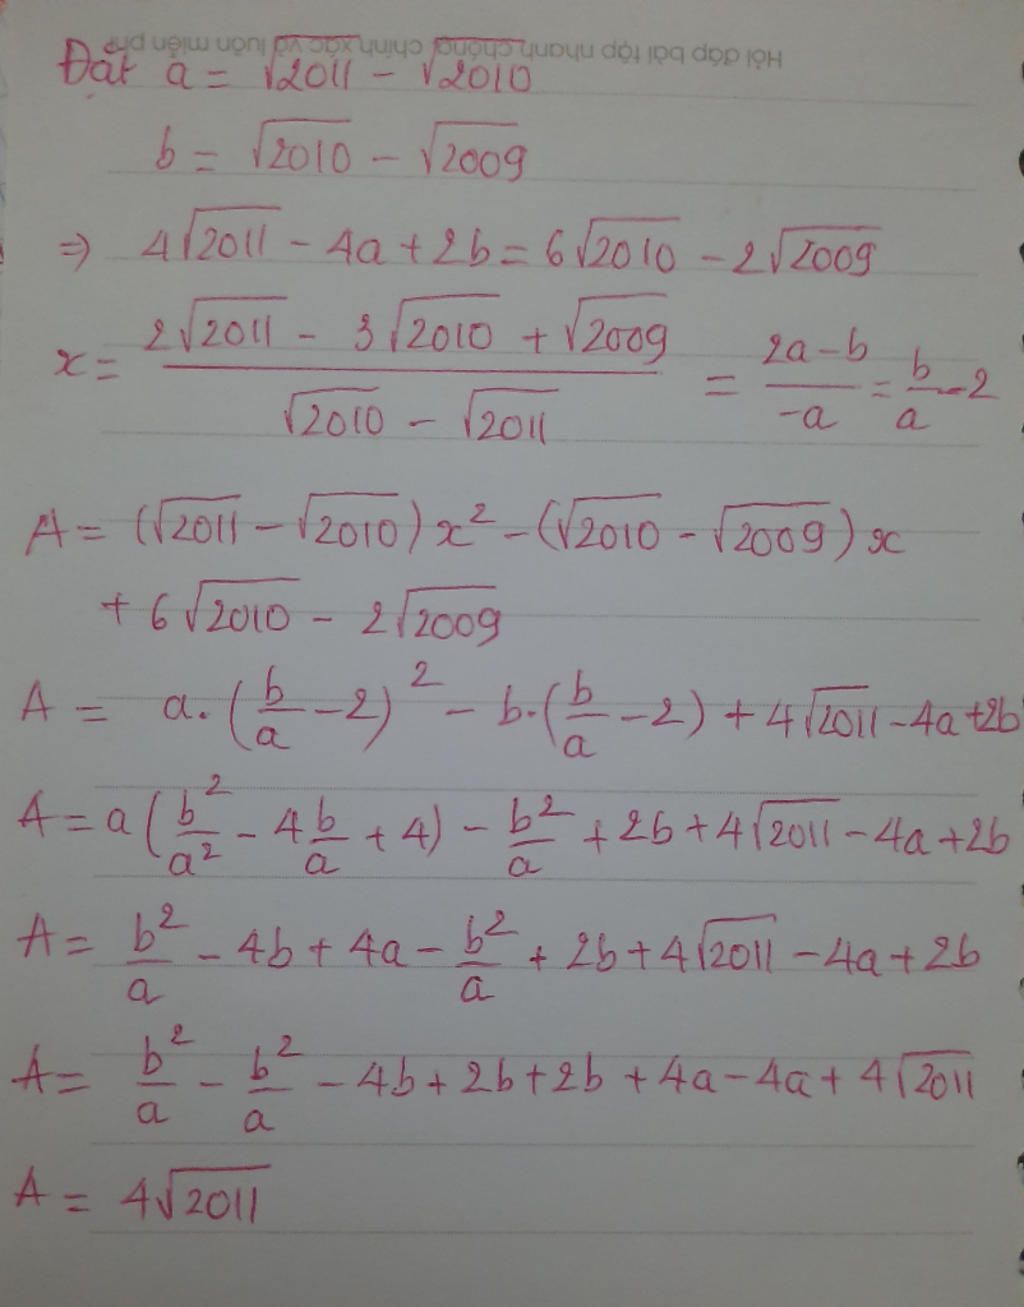 Hỏi đáp bài tập nhanh chóng, chính xác và luôn miễn phí
Đặt a = √2011 - √2010
b = √2010 - √2009
⇒ 4√2011 - 4a + 2b = 6√2010 - 2√2009
x = (2√2011 - 3√2010 + √2009)/(√2010 - √2011) = (2a - b)/(-a) = b/a - 2
A = (√2011 - √2010)x² - (√2010 - √2009)x
+ 6√2010 - 2√2009
A = a.(b/a - 2)² - b.(b/a - 2) + 4√2011 - 4a + 2b
A = a(b²/a² - 4b/a + 4) - b²/a + 2b + 4√2011 - 4a + 2b
A = b²/a - 4b + 4a - b²/a + 2b + 4√2011 - 4a + 2b
A = b²/a - b²/a - 4b + 2b + 2b + 4a - 4a + 4√2011
A = 4√2011